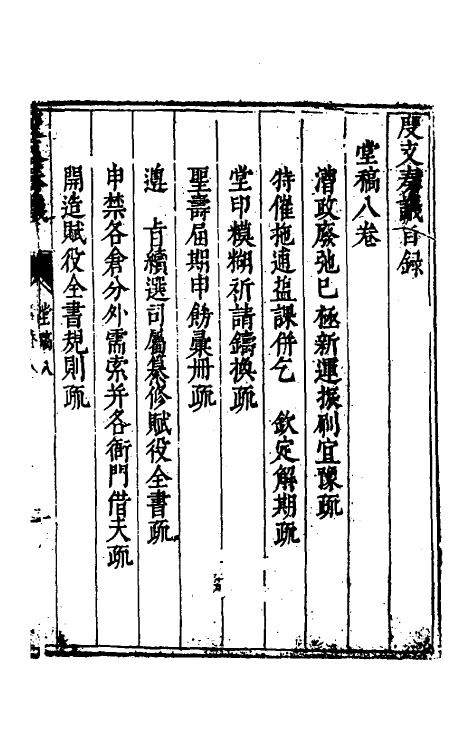 度支奏議目録
堂稿八卷
漕政廢弛已極新運振刷宜豫疏
特催拖逋盐課併乞　欽定解期疏
堂印模糊祈請鑄換疏
聖壽届期申飭彚册疏
遵　旨續選司屬纂修賦役全書疏
申禁各倉分外需索并各衙門借夫疏
開造賦役全書規則疏
堂稿八